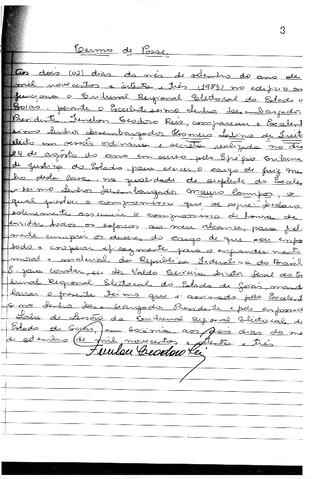 3
Termo de Posse.
Aos dois (02) dias do mês de setembro do ano de
mil novecentos e oitenta e três (1983) no edifício on
funciona o Tribunal Regional Eleitoral do Estado
Goiás, perante o Excelentíssimo Senhor Desembargador
Presidente Fenelon Teodoro Reis, compareceu o Excelent
íssimo Senhor Desembargador Homero Sabino de Freitas
eleito em sessão ordinária e secreta realizada no dia
24 de agosto do ano em curso, pelo Egrégio Tribuna
de Justiça do Estado, para exercer o cargo de juiz mem
bro desta Casa, na qualidade de suplente do Excelen
tíssimo Senhor Desembargador Mauro Campos, o
qual prestou o compromisso que se segue: "Declaro
solenemente assumir o compromisso de honra de
envidar todos os esforços ao meu alcance, para fiel
mente cumprir os deveres do cargo de que sou empo
ssado e cooperar eficazmente para o engrandecimento
moral e material da República Federativa do Brasil
E, para constar, eu Valdo Teixeira, Diretor Geral do Tri
bunal Regional Eleitoral do Estado de Goiás, mandei
lavrar o presente Termo que é assinado pelo Excelent
íssimo Senhor Desembargador Presidente e pelo empossado
Sala de Sessão do Tribunal Regional Eleitoral do
Estado de Goiás, em Goiânia, aos dois dias do mês
de setembro de mil novecentos e oitenta e três
Fenelon Teodoro Reis